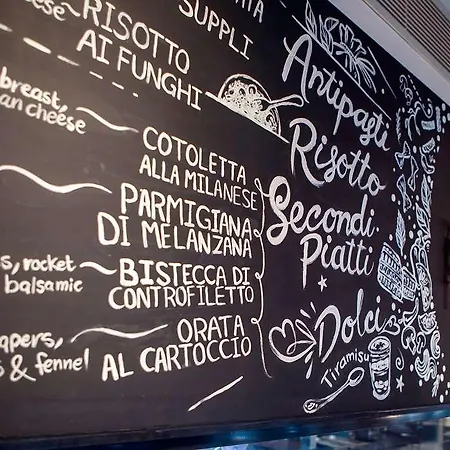 SUPPLI
cheese
RISOTTO
AI FUNGHI
breast,
an cheese
COTOLETTA
ALLA MILANESE
PARMIGIANA
DI MELANZANA
rocket
balsamic
BISTECCA DI
CONTROFILETTO
ORATA
AL CARTOCCIO
& fennel
Antipasti
Risotto
Secondi
Piatti
Dolci
Tiramisu